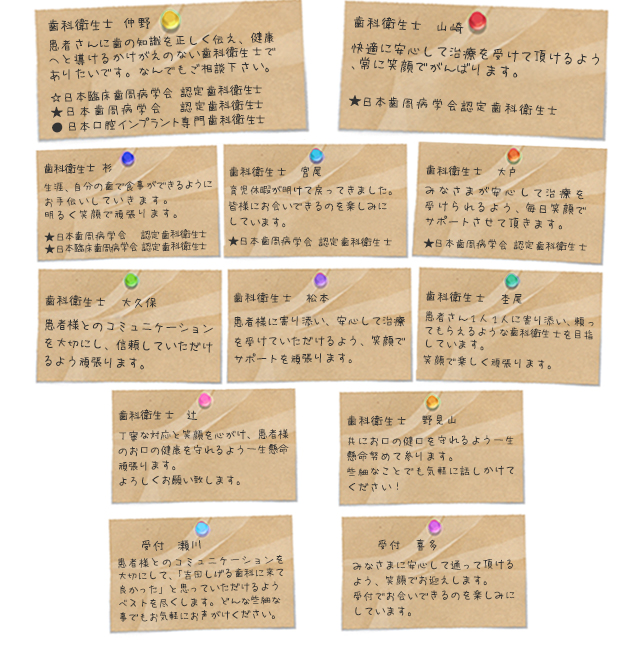 歯科衛生士 仲野
患者さんに歯の知識を正しく伝え、健康
へと導けるかけがえのない歯科衛生士で
ありたいです。なんでもご相談下さい。
☆日本臨床歯周病学会 認定歯科衛生士
★日本歯周病学会 認定歯科衛生士
●日本口腔インプラント専門歯科衛生士
歯科衛生士 山崎
快適に安心して治療を受けて頂けるよう
、常に笑顔でがんばります。
★日本歯周病学会認定歯科衛生士
歯科衛生士 杉
生涯、自分の歯で食事ができるように
お手伝いしていきます。
明るく笑顔で頑張ります。
★日本歯周病学会 認定歯科衛生士
★日本臨床歯周病学会 認定歯科衛生士
歯科衛生士 宮尾
育児休暇が明けて戻ってきました。
皆様にお会いできるのを楽しみに
しています。
★日本歯周病学会 認定歯科衛生士
歯科衛生士 大戸
みなさまが安心して治療を
受けられるよう、毎日笑顔で
サポートさせて頂きます。
★日本歯周病学会 認定歯科衛生士
歯科衛生士 大久保
患者様とのコミュニケーション
を大切にし、信頼していただけ
るよう頑張ります。
歯科衛生士 松本
患者様に寄り添い、安心して治療
を受けていただけるよう、笑顔で
サポートを頑張ります。
歯科衛生士 杢尾
患者さん1人1人に寄り添い、頼っ
てもらえるような歯科衛生士を目指
しています。
笑顔で楽しく頑張ります。
歯科衛生士 辻
丁寧な対応と笑顔を心がけ、患者様
のお口の健康を守れるよう一生懸命
頑張ります。
よろしくお願い致します。
歯科衛生士 野是山
共にお口の健口を守れるよう一生
懸命努めて参ります。
些細なことでも気軽に話しかけて
ください！
受付 瀬川
患者様とのコミュニケーションを
大切にして、「吉田しげる歯科に来て
良かった」と思っていただけるよう
ベストを尽くします。どんな些細な
事でもお気軽にお声がけください。
受付 喜多
みなさまに安心して通って頂ける
よう、笑顔でお迎えします。
受付でお会いできるのを楽しみに
しています。